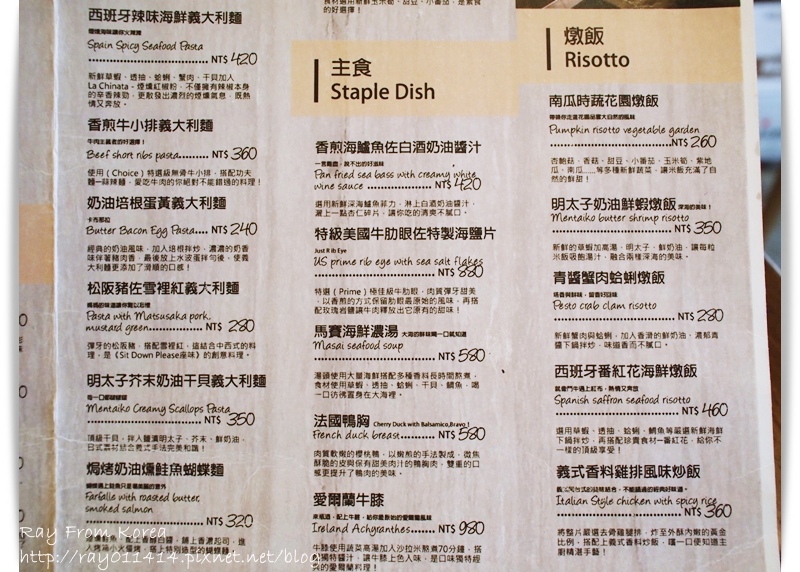 西班牙辣味海鮮義大利麵
Spain Spicy Seafood Pasta
NT$ 420
新鮮草蝦、透抽、蛤蜊、蟹肉、干貝加入
La Chinata - 煙燻紅椒粉，不僅擁有辣椒本身
的辛香辣勁，更散發出濃烈的煙燻氣息，既熱
情又奔放。
香煎牛小排義大利麵
牛肉主義者的好選擇！
Beef short ribs pasta........ NT$ 360
使用（Choice）特選級無骨牛小排，搭配功夫
麵—絲辣麵，愛吃牛肉的你絕對不能錯過的料理！
奶油培根蛋黃義大利麵
卡布那拉
Butter Bacon Egg Pasta.... NT$ 240
經典的奶油風味，加入培根拌炒，濃濃的奶香
味伴著豬肉香，最後放上水波蛋拌勻後，使義
大利麵更添加了滑順的口感！
松阪豬佐雪裡紅義大利麵
Pasta with Matsusaka pork,
mustard green............... NT$ 280
彈牙的松阪豬，搭配雪裡紅，這結合中西式的料
理，是《Sit Down Please座味》的創意料理。
明太子芥末奶油干貝義大利麵
每一口都啵啵啵
Mentaiko Creamy Scallops Pasta
NT$ 350
頂級干貝，拌入釀漬明太子、芥末、鮮奶油，
日式素材結合義式手法完美和諧！
焗烤奶油燻鮭魚蝴蝶麵
Farfalle with roasted butter,
smoked salmon
NT$ 320
的好選擇！
主食
Staple Dish
香煎海鱸魚佐白酒奶油醬汁
一言難盡，說不出的好滋味
Pan fried sea bass with creamy white
wine sauce ............... NT$ 420
選用新鮮深海鱸魚菲力，淋上白酒奶油醬汁，
灑上一點杏仁碎片，讓你吃的清爽不膩口。
特級美國牛肋眼佐特製海鹽片
Just Rib Eye
US prime rib eye with sea salt flakes
NT$ 880
特選（Prime）極佳級牛肋眼，肉質彈牙甜美
、以香煎的方式保留肋眼最原始的風味，再搭
配玫瑰岩鹽讓牛肉釋放出它原有的甜味！
馬賽海鮮濃湯 大海的鮮味喝一口就知道
Masai seafood soup
NT$ 580
湯頭使用大量海鮮搭配多種香料長時間熬煮，
食材使用草蝦、透抽、蛤蜊、干貝、鯛魚，喝
一口彷彿置身在大海裡。
法國鴨胸 Cherry Duck with Balsamico,Bravo !
French duck breast........ NT$ 580
肉質軟嫩的櫻桃鴨，以嫩煎的手法製成，微焦
酥脆的皮與保有甜美肉汁的鴨胸肉，雙重的口
感更提升了鴨肉的美味。
愛爾蘭牛膝
來瓶酒，配上牛膝，給你最原始的愛爾蘭風味
Ireland Achyranthes
NT$ 980
牛膝使用蔬菜高湯加入沙拉米熬煮70分鐘，搭
配獨特醬汁，讓牛膝上色入味，是口味獨特經
典的愛爾蘭料理！
燉飯
Risotto
南瓜時蔬花園燉飯
帶領你走進花園品嘗大自然的風味
Pumpkin risotto vegetable garden
NT$ 260
杏鮑菇、香菇、甜豆、小番茄、玉米筍、紫地
瓜、南瓜......等多種新鮮蔬菜，讓米飯充滿了自
然的鮮甜！
明太子奶油鮮蝦燉飯 深海的美味！
Mentaiko butter shrimp risotto
NT$ 350
新鮮的草蝦加高湯、明太子、鮮奶油，讓每粒
米飯吸飽湯汁，融合兩種深海的美味。
青醬蟹肉蛤蜊燉飯
塔香與鮮味，留香好回味
Pesto crab clam risotto
NT$ 280
新鮮蟹肉與蛤蜊，加入香滑的鮮奶油，濃郁青
醬下鍋拌炒，味道香而不膩口。
西班牙番紅花海鮮燉飯
鬥牛遇上紅布，熱情又奔放
Spanish saffron seafood risotto
NT$ 460
選用草蝦、透抽、蛤蜊、鯛魚等嚴選新鮮海鮮
下鍋拌炒，再搭配珍貴食材—番紅花，給你不
一樣的頂級享受！
義式香料雞排風味炒飯
Italian Style chicken with spicy rise
NT$ 360
將整片嚴選去骨雞腿排，炸至外酥內嫩的黃金
比例，搭配上義式香料炒飯，嚐一口便知道主
廚精湛手藝！
Ray From Korea
http://ray011414.pixnet.net/blog